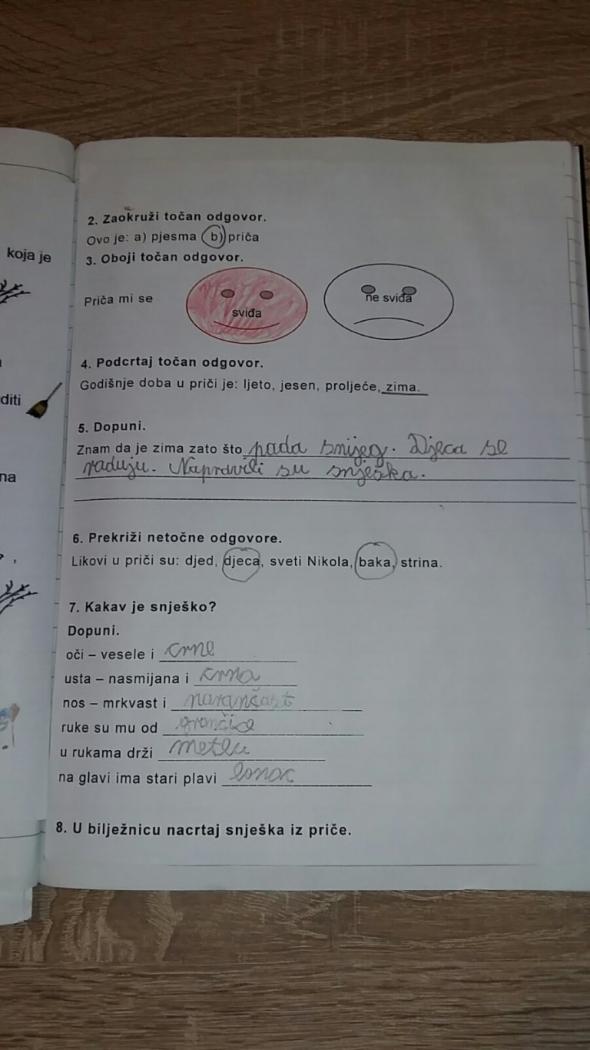 koja je
diti
na
2. Zaokruži točan odgovor.
Ovo je: a) pjesma b) priča
3. Oboji točan odgovor.
Priča mi se
sviđa
ne sviđa
4. Podcrtaj točan odgovor.
Godišnje doba u priči je: ljeto, jesen, proljeće, zima.
5. Dopuni.
Znam da je zima zato što pada snijeg. Djeca se
raduju. Napravili su snješka.
6. Prekriži netočne odgovore.
Likovi u priči su: djed, djeca, sveti Nikola, baka, strina.
7. Kakav je snješko?
Dopuni.
oči – vesele i crne
usta – nasmijana i crna
nos – mrkvast i narančast
ruke su mu od grančice
u rukama drži metlu
na glavi ima stari plavi lonac
8. U bilježnicu nacrtaj snješka iz priče.